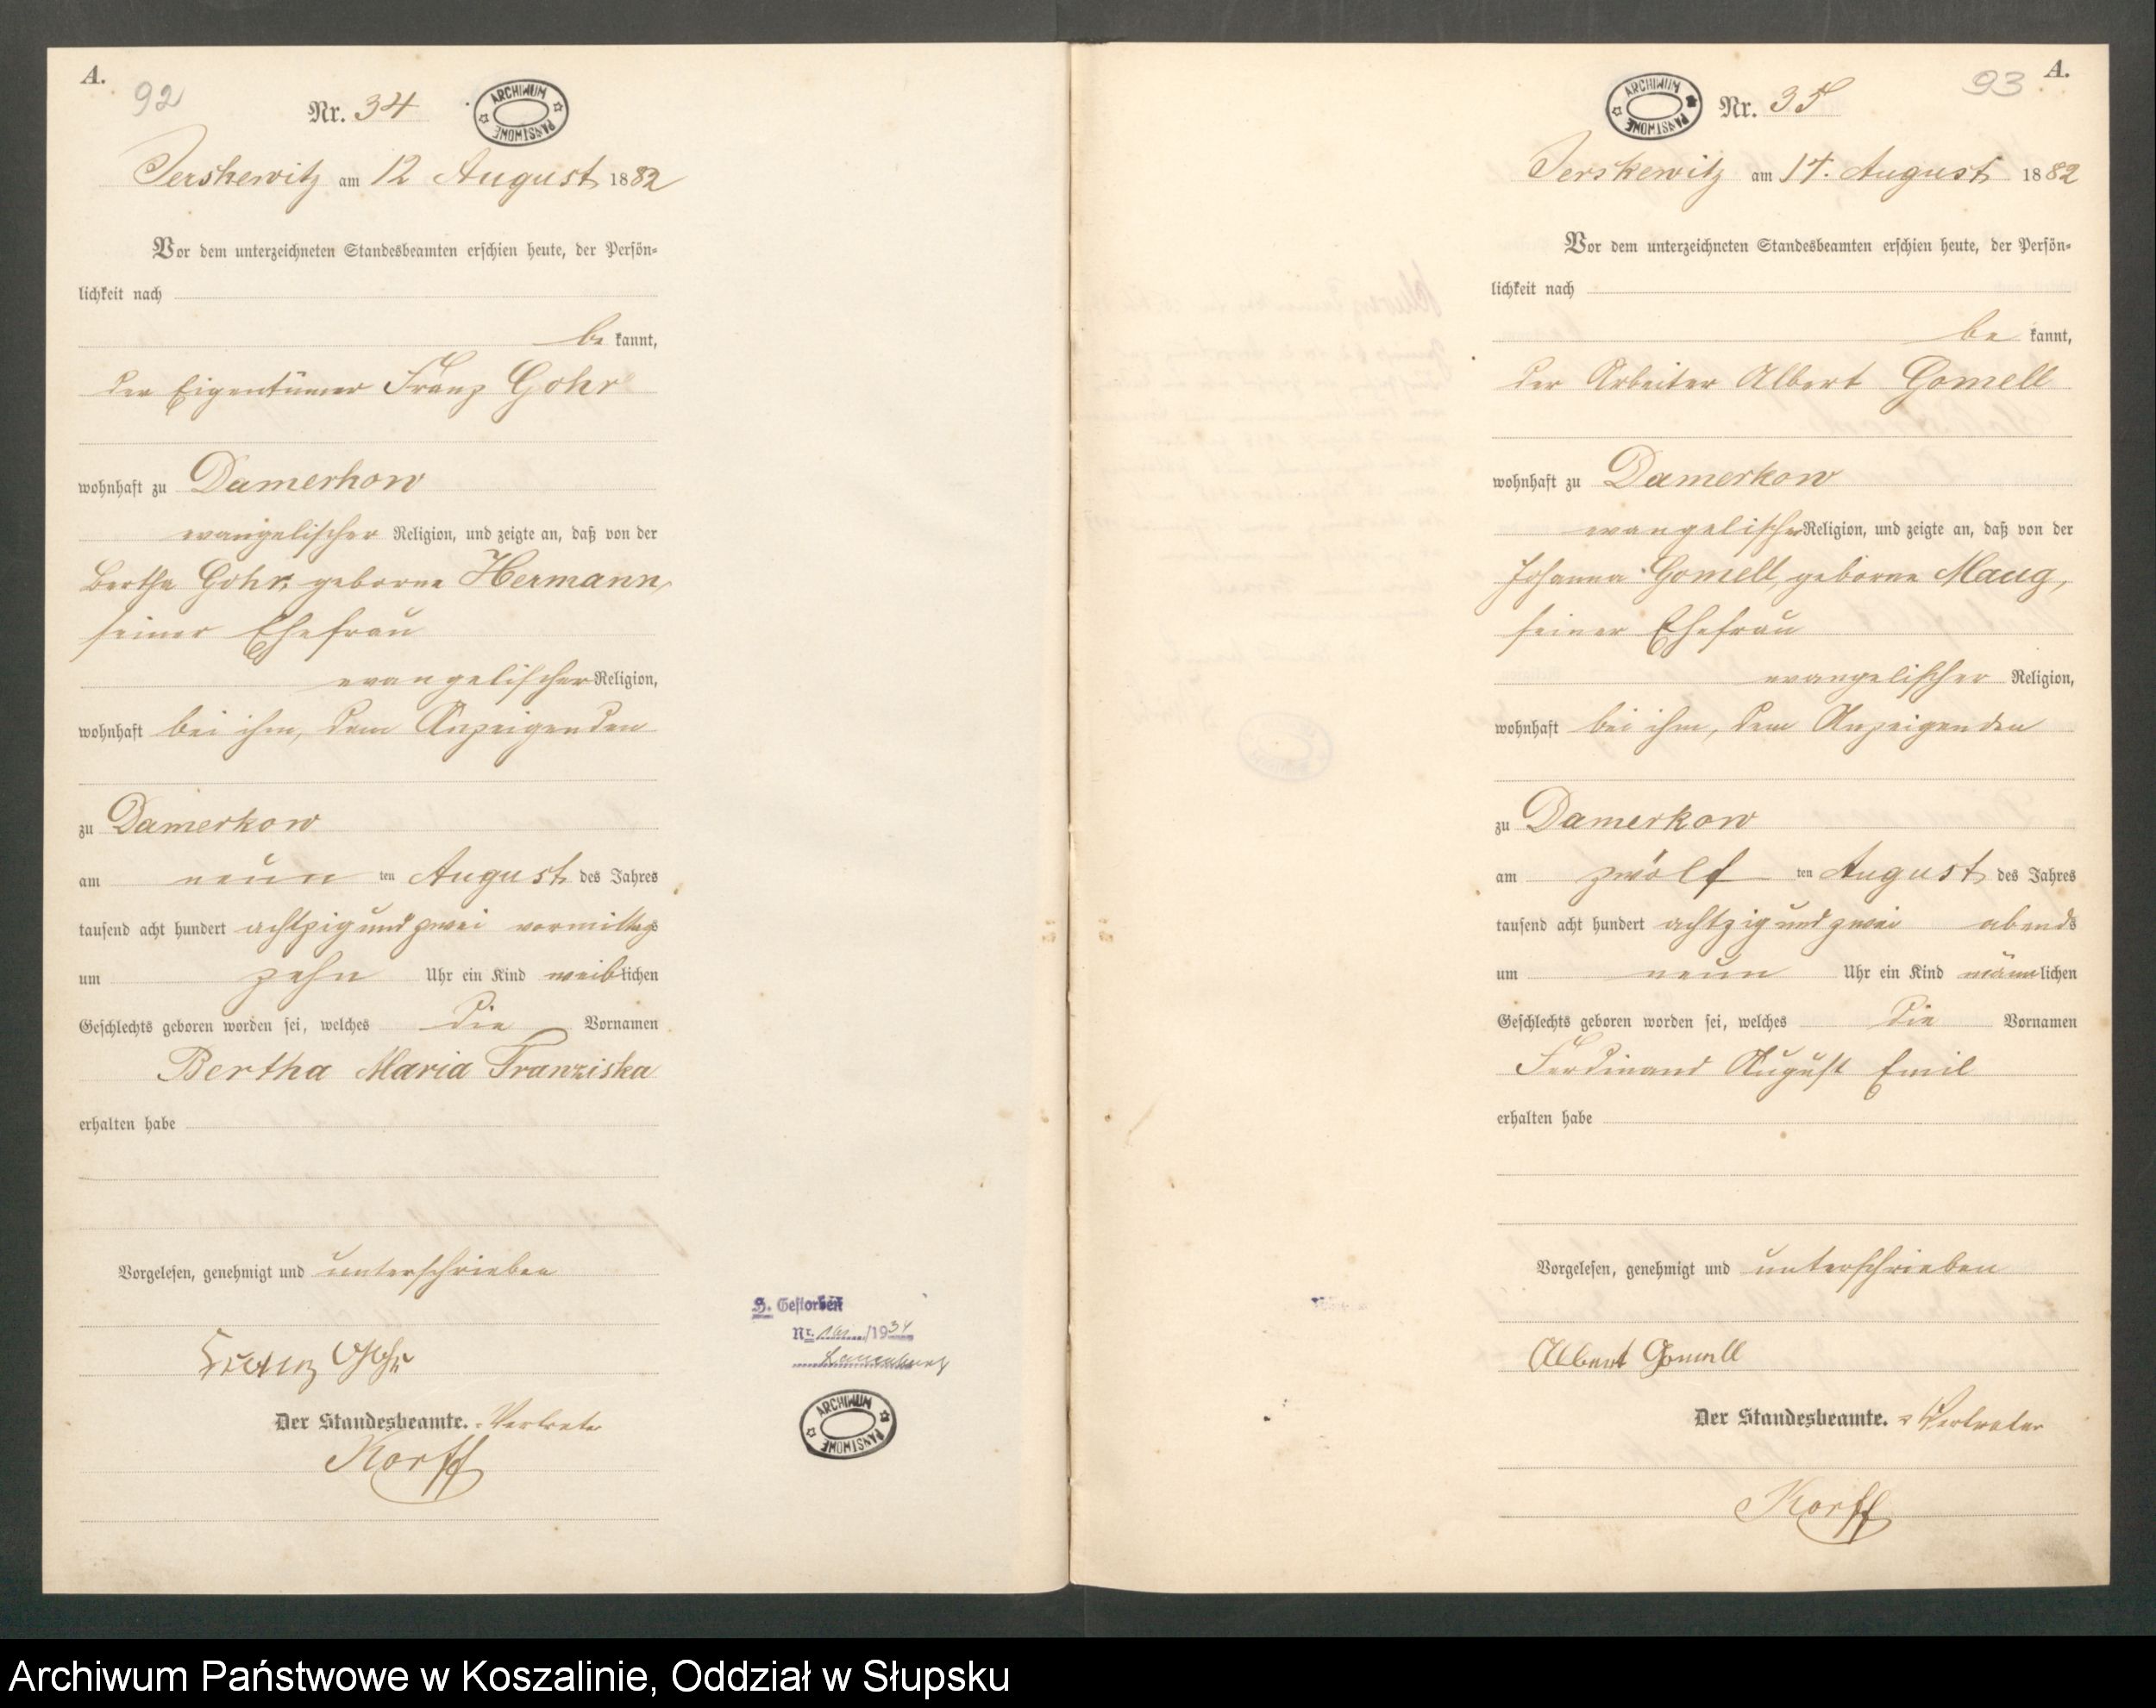 A.
92
Nr. 34
ARCHIWUM PAŃSTWOWE
Jerskewitz am 12 August 1882
Vor dem unterzeichneten Standesbeamten erschien heute, der Persön-
lichkeit nach
be kannt,
der Eigentümer Franz Gohr
wohnhaft zu Damerkow
evangelischer Religion, und zeigte an, daß von der
Bertha Gohr, geborne Hermann,
seiner Ehefrau
evangelischer Religion,
wohnhaft bei ihm, dem Anzeigenden
zu Damerkow
am neun ten August des Jahres
tausend acht hundert achtzig und zwei vormittags
um zehn Uhr ein Kind weiblichen
Geschlechts geboren worden sei, welches die Vornamen
Bertha Maria Franziska
erhalten habe
Vorgelesen, genehmigt und unterschrieben
Franz Gohr
Der Standesbeamte. Vertreter
Korff
S. Gestorben
Nr. /1934
Lauenburg
ARCHIWUM PAŃSTWOWE
93
A.
ARCHIWUM PAŃSTWOWE
Nr. 35
Jerskewitz am 17. August 1882
Vor dem unterzeichneten Standesbeamten erschien heute, der Persön-
lichkeit nach
be kannt,
der Arbeiter Albert Gomell
wohnhaft zu Damerkow
evangelischer Religion, und zeigte an, daß von der
Johanna Gomell, geborne Maug,
seiner Ehefrau
evangelischer Religion,
wohnhaft bei ihm, dem Anzeigenden
zu Damerkow
am zwölf ten August des Jahres
tausend acht hundert achtzig und zwei abends
um neun Uhr ein Kind männlichen
Geschlechts geboren worden sei, welches die Vornamen
Ferdinand August Emil
erhalten habe
Vorgelesen, genehmigt und unterschrieben
Albert Gomell
Der Standesbeamte. Vertreter
Korff
Archiwum Państwowe w Koszalinie, Oddział w Słupsku